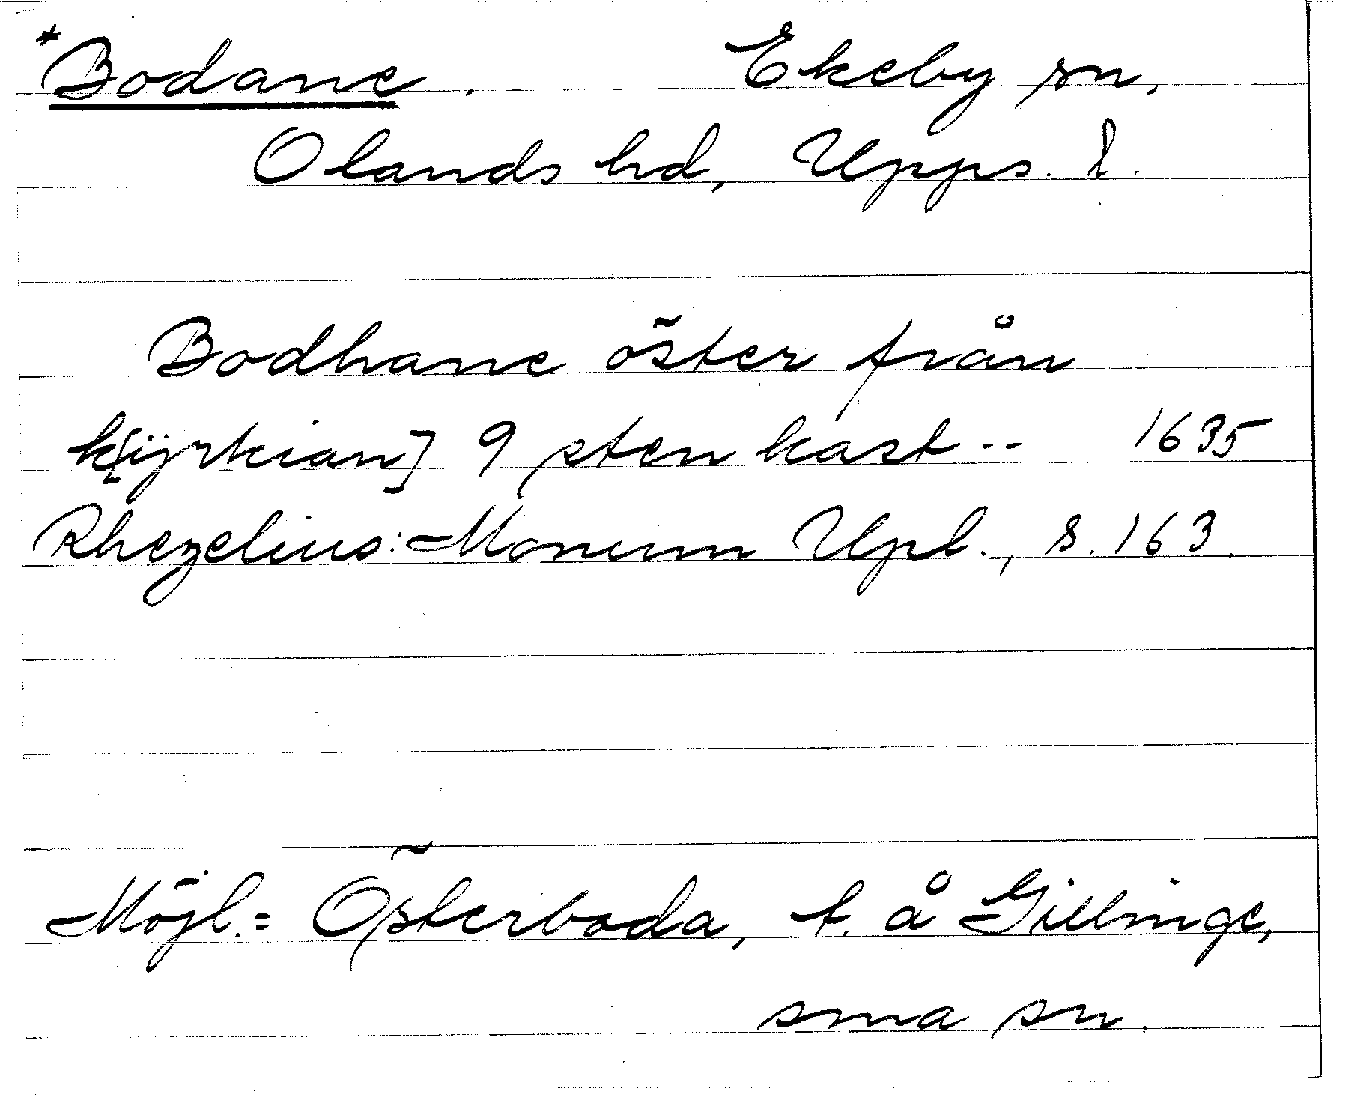 *Bodane. Ekeby sn,
Olands hd, Upps. l.
Bodhane öster från
k[ÿrkian] 9 sten kast -- 1635
Rhezelius: Monum Upl., s. 163.
Möjl. = Österboda, t. å Gillinge,
sma sn.